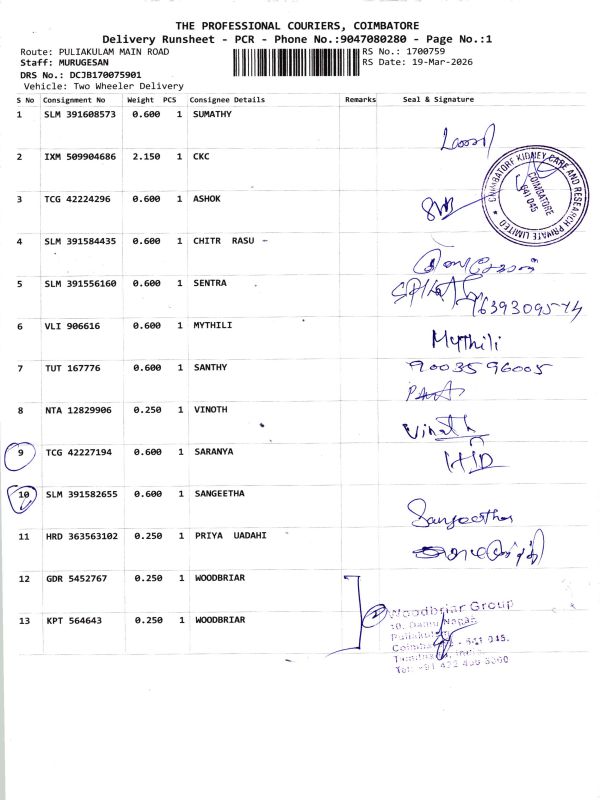 THE PROFESSIONAL COURIERS, COIMBATORE
Delivery Runsheet - PCR - Phone No.:9047080280 - Page No.:1
Route: PULIAKULAM MAIN ROAD RS No.: 1700759
Staff: MURUGESAN RS Date: 19-Mar-2026
DRS No.: DCJB170075901
Vehicle: Two Wheeler Delivery
S No Consignment No Weight PCS Consignee Details Remarks Seal & Signature
1 SLM 391608573 0.600 1 SUMATHY
2 IXM 509904686 2.150 1 CKC
COIMBATORE KIDNEY CARE AND RESEARCH PRIVATE LIMITED ★
COIMBATORE
641 045
3 TCG 42224296 0.600 1 ASHOK
4 SLM 391584435 0.600 1 CHITR RASU -
5 SLM 391556160 0.600 1 SENTRA
6 VLI 906616 0.600 1 MYTHILI Mythili
7 TUT 167776 0.600 1 SANTHY 9003596005
8 NTA 12829906 0.250 1 VINOTH Vinoth
9 TCG 42227194 0.600 1 SARANYA
10 SLM 391582655 0.600 1 SANGEETHA Sangeetha
11 HRD 363563102 0.250 1 PRIYA UADAHI
12 GDR 5452767 0.250 1 WOODBRIAR
13 KPT 564643 0.250 1 WOODBRIAR
Woodbriar Group
Puliakulam
641 045.